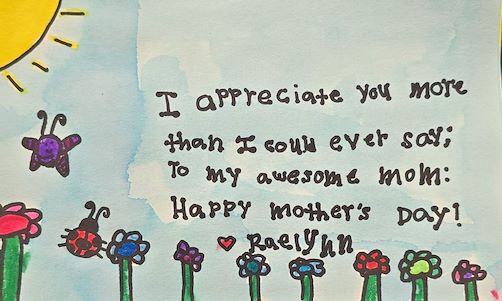 I appreciate you more
than I could ever say;
To my awesome mom:
Happy mother's Day!
♥ Raelynn